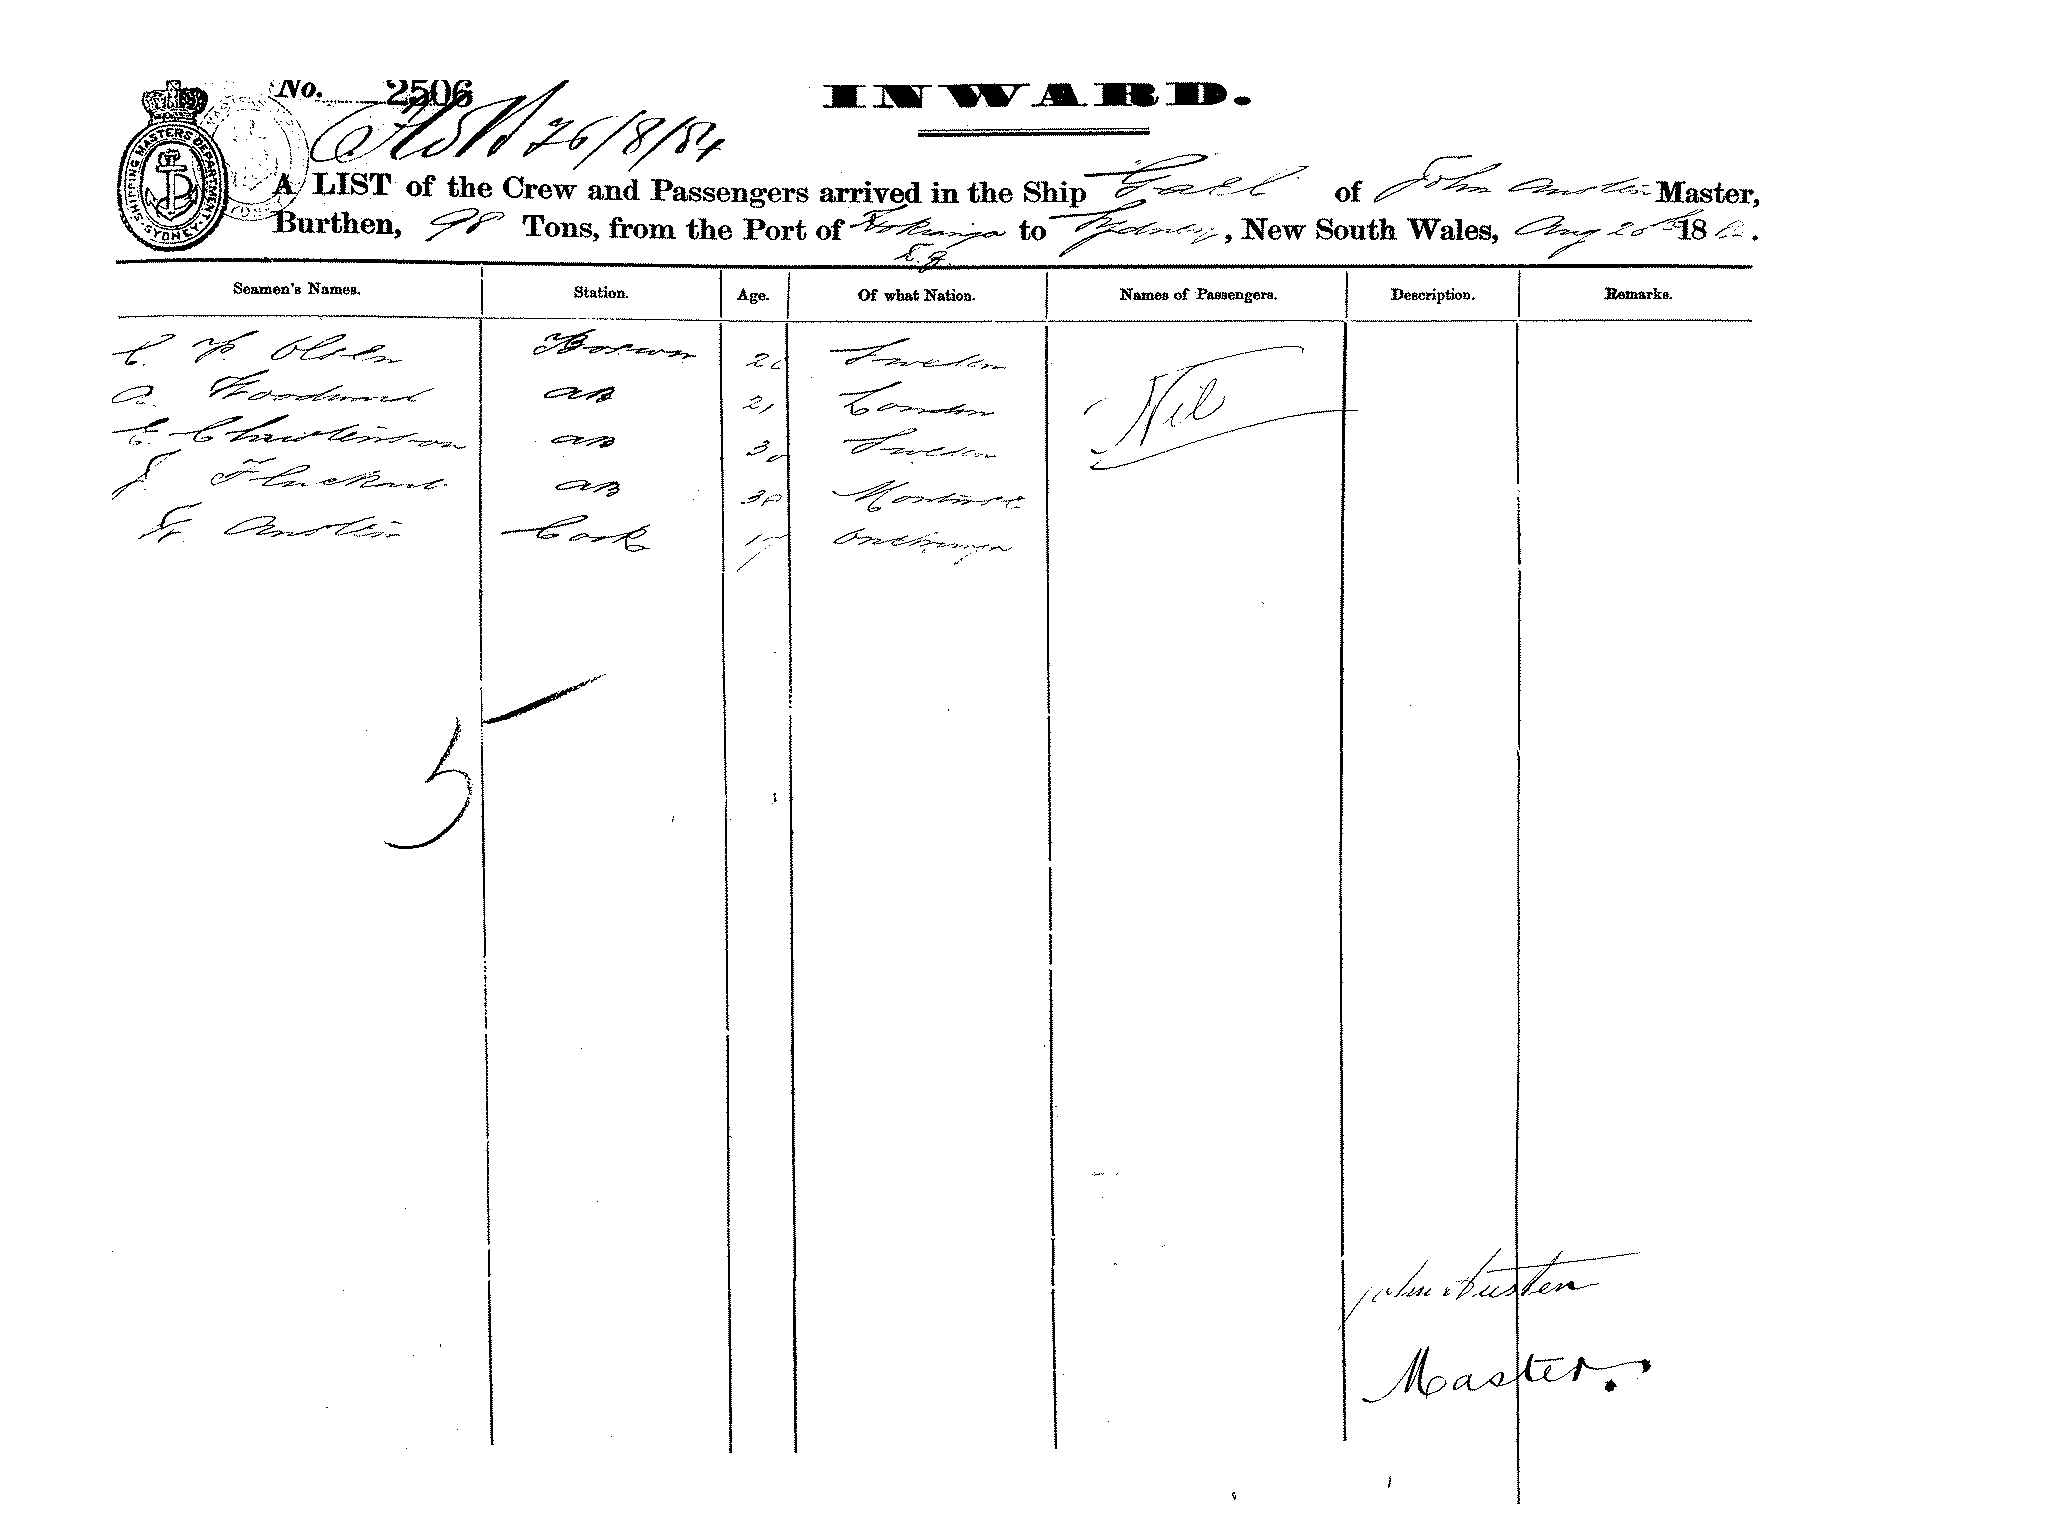 No. 2506
INWARD.
26/8/84
SHIPPING MASTERS DEPARTMENT SYDNEY
A LIST of the Crew and Passengers arrived in the Ship Gael of John Austin Master,
Burthen, 98 Tons, from the Port of Hokianga to Sydney, New South Wales, Aug 18
Seamen's Names. Station. Age. Of what Nation. Names of Passengers. Description. Remarks.
C. Olsen Boswn Sweden Nil
A. Woodward AB 21 London
E. Christenson AB 30 Sweden
J. AB 38 Montrose
W. Austin Cook Onehunga
5
John Austen
Master.